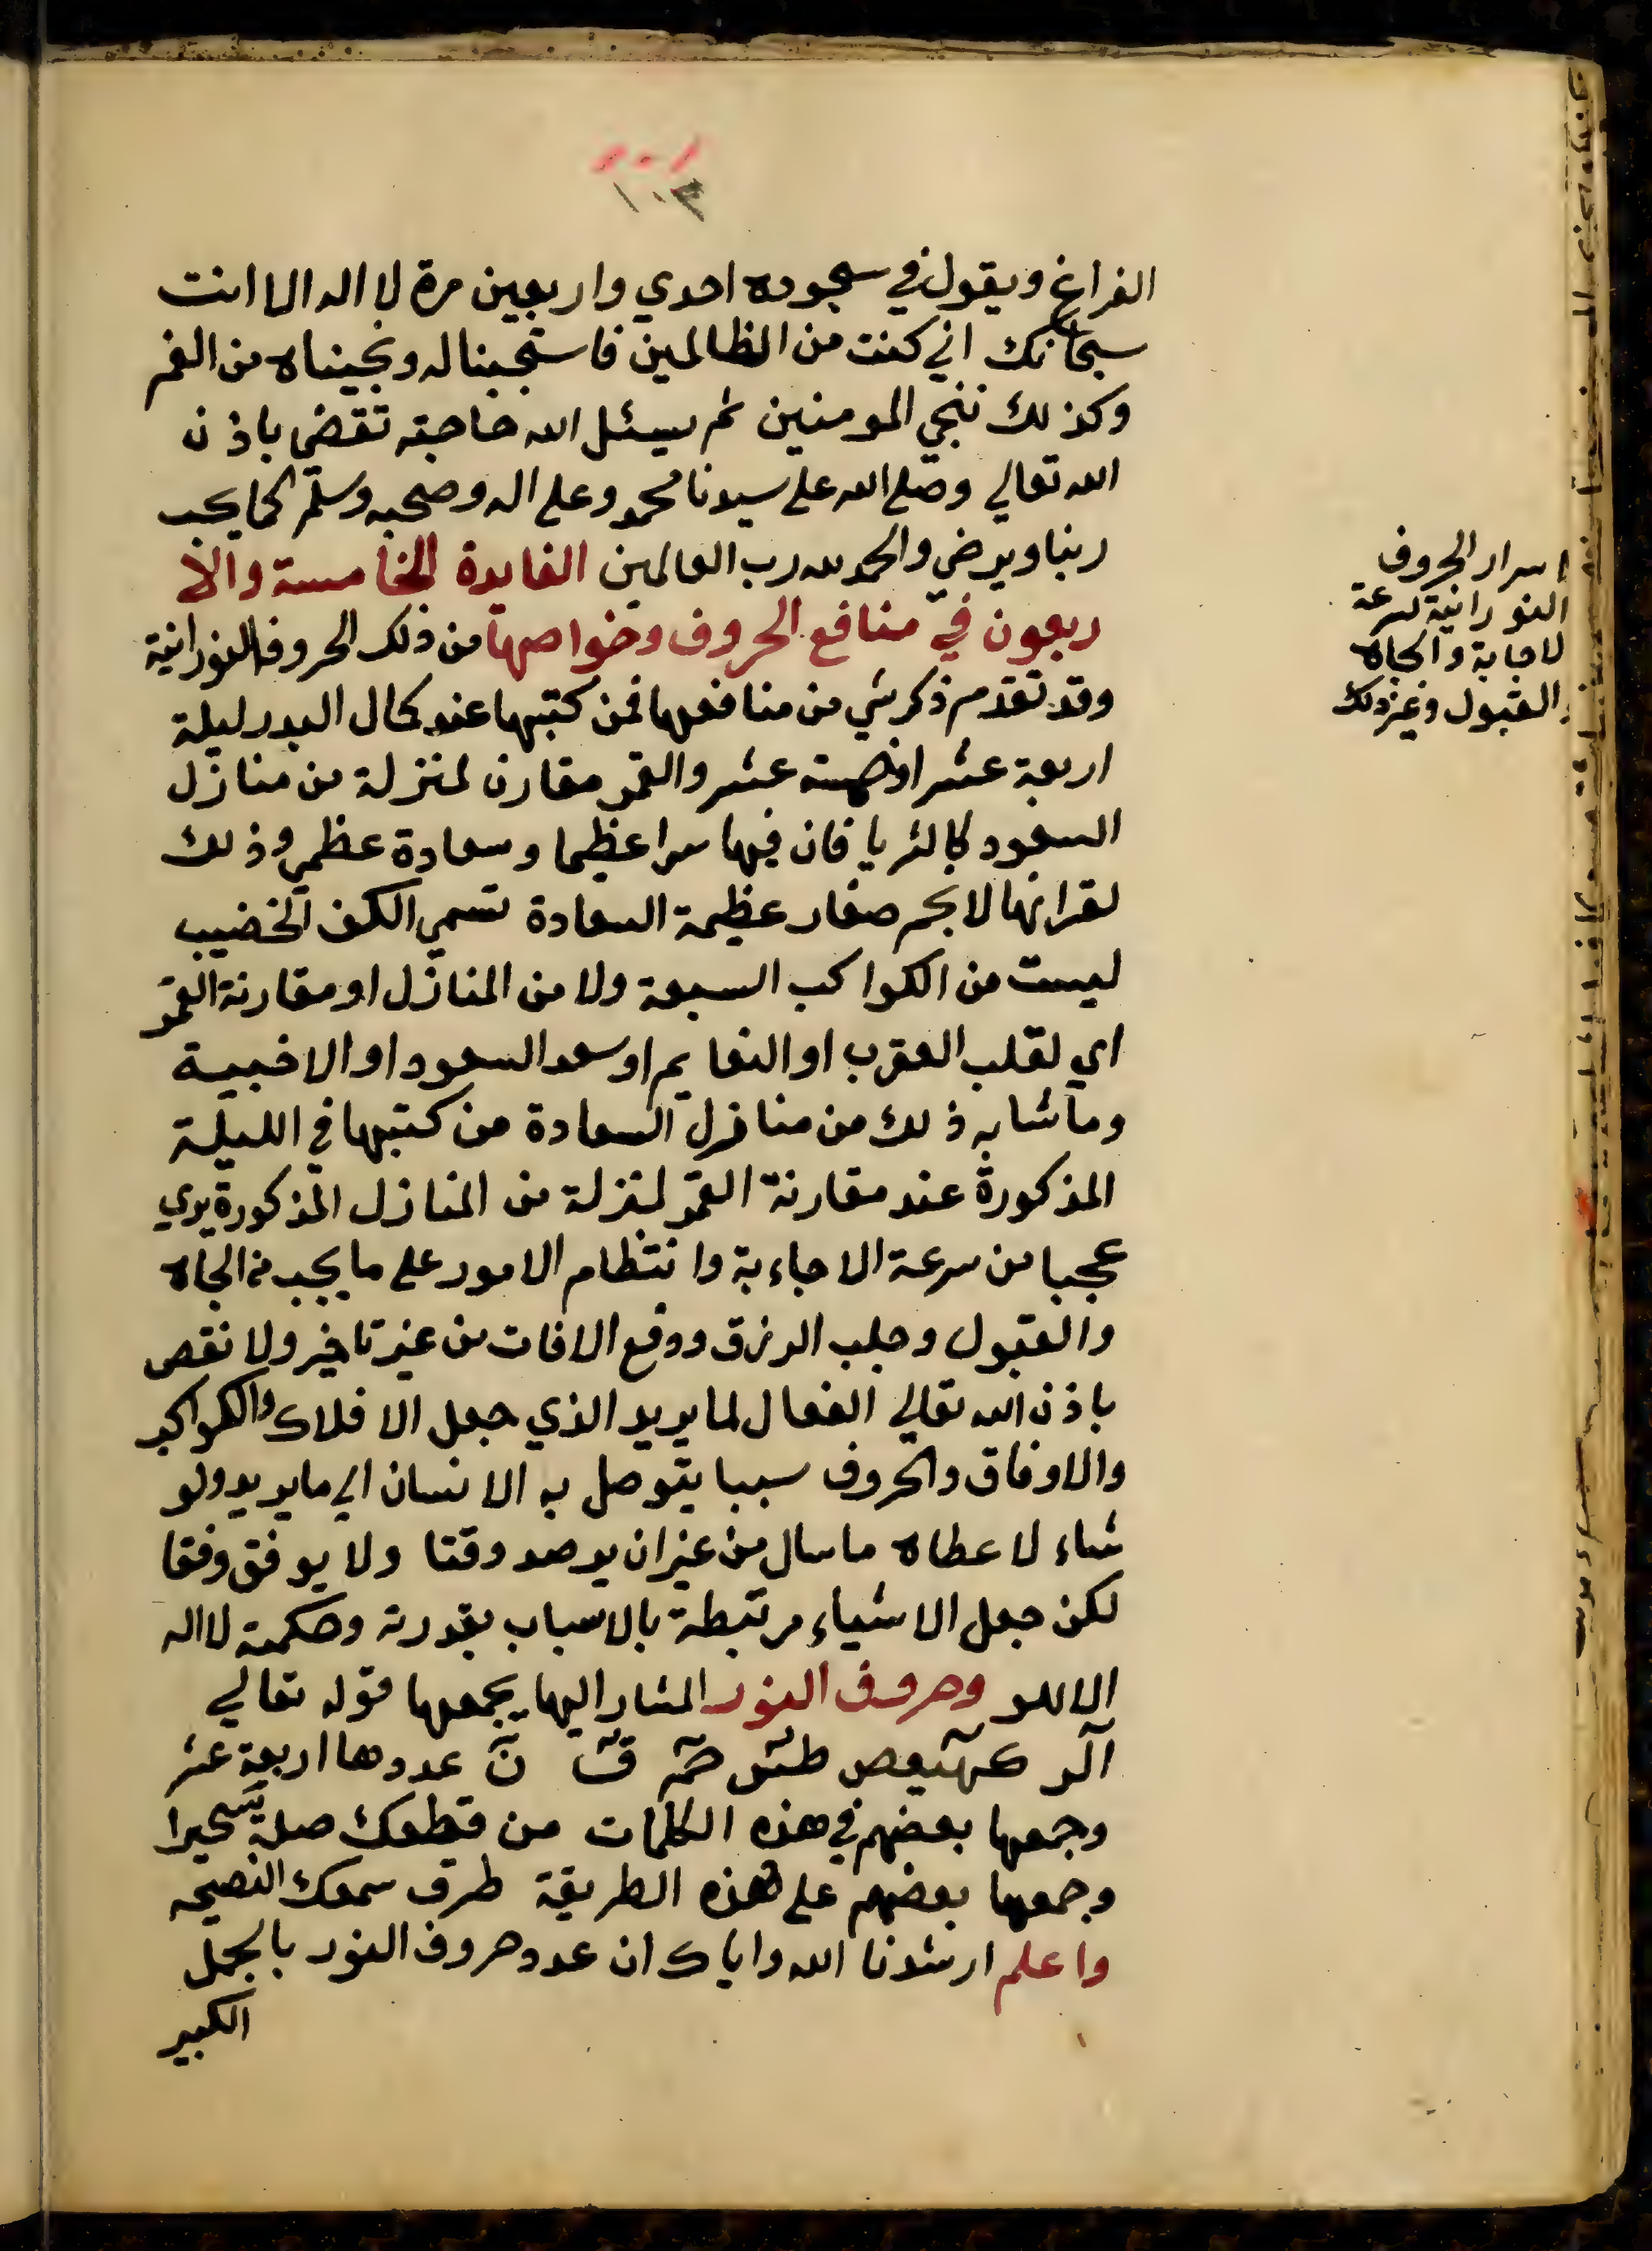 ١٠٣
الفراغ ويقول في سجوده احدي واربعين مرة لا اله الا انت
سبحانك اني كنت من الظالمين فاستجبنا له ونجيناه من الغم
وكذلك ننجي المومنين ثم يسئل الله حاجته تقضي باذن
الله تعالي وصلي الله علي سيدنا محمد وعلي اله وصحبه وسلم كما يحب
ربنا ويرضي والحمد لله رب العالمين الفايدة الخامسة والا
ربعون في منافع الحروف وخواصها من ذلك الحروف النورانية
وقد تقدم ذكر شي من منافعها فمن كتبها عند كمال البدر ليلة
اربعة عشر او خمسة عشر والقمر مقارن لمنزلة من منازل
السعود كالثريا فان فيها سرا عظيما وسعادة عظمي وذلك
لقرانها لانجم صغار عظيمة السعادة تسمي الكف الخضيب
ليست من الكواكب السبعة ولا من المنازل او مقارنة القمر
اي لقلب العقرب او النعايم او سعد السعود او الاخبية
وما شابه ذلك من منازل السعادة من كتبها في الليلة
المذكورة عند مقارنة القمر لمنزلة من المنازل المذكورة يري
عجبا من سرعة الاجاءبة وانتظام الامور علي ما يحب من الجاه
والقبول وجلب الرزق ودفع الافات من غير تاخير ولا نقص
باذن الله تعالي الفعال لما يريد الذي جعل الافلاك والكواكب
والاوفاق والحروف سببا يتوصل به الانسان الي ما يريد ولو
شاء لاعطاه ما سال من غير ان يرصد وقتا ولا يوفق وفقا
لكن جعل الاشياء مرتبطة بالاسباب بقدرته وحكمته لا اله
الا هو وحروف النور المشار اليها يجمعها قوله تعالي
آلر كهيعص طس حم ق ن عددها اربعة عشر
وجمعها بعضهم في هذه الكلمات من قطعك صله سحيرا
وجمعها بعضهم علي هذه الطريقة طرق سمعك النصيحه
واعلم ارشدنا الله واياك ان عدد حروف النور بالجمل
الكبير
اسرار الحروف
النورانية لسرعة
لاجابة والجاه
والقبول وغير ذلك